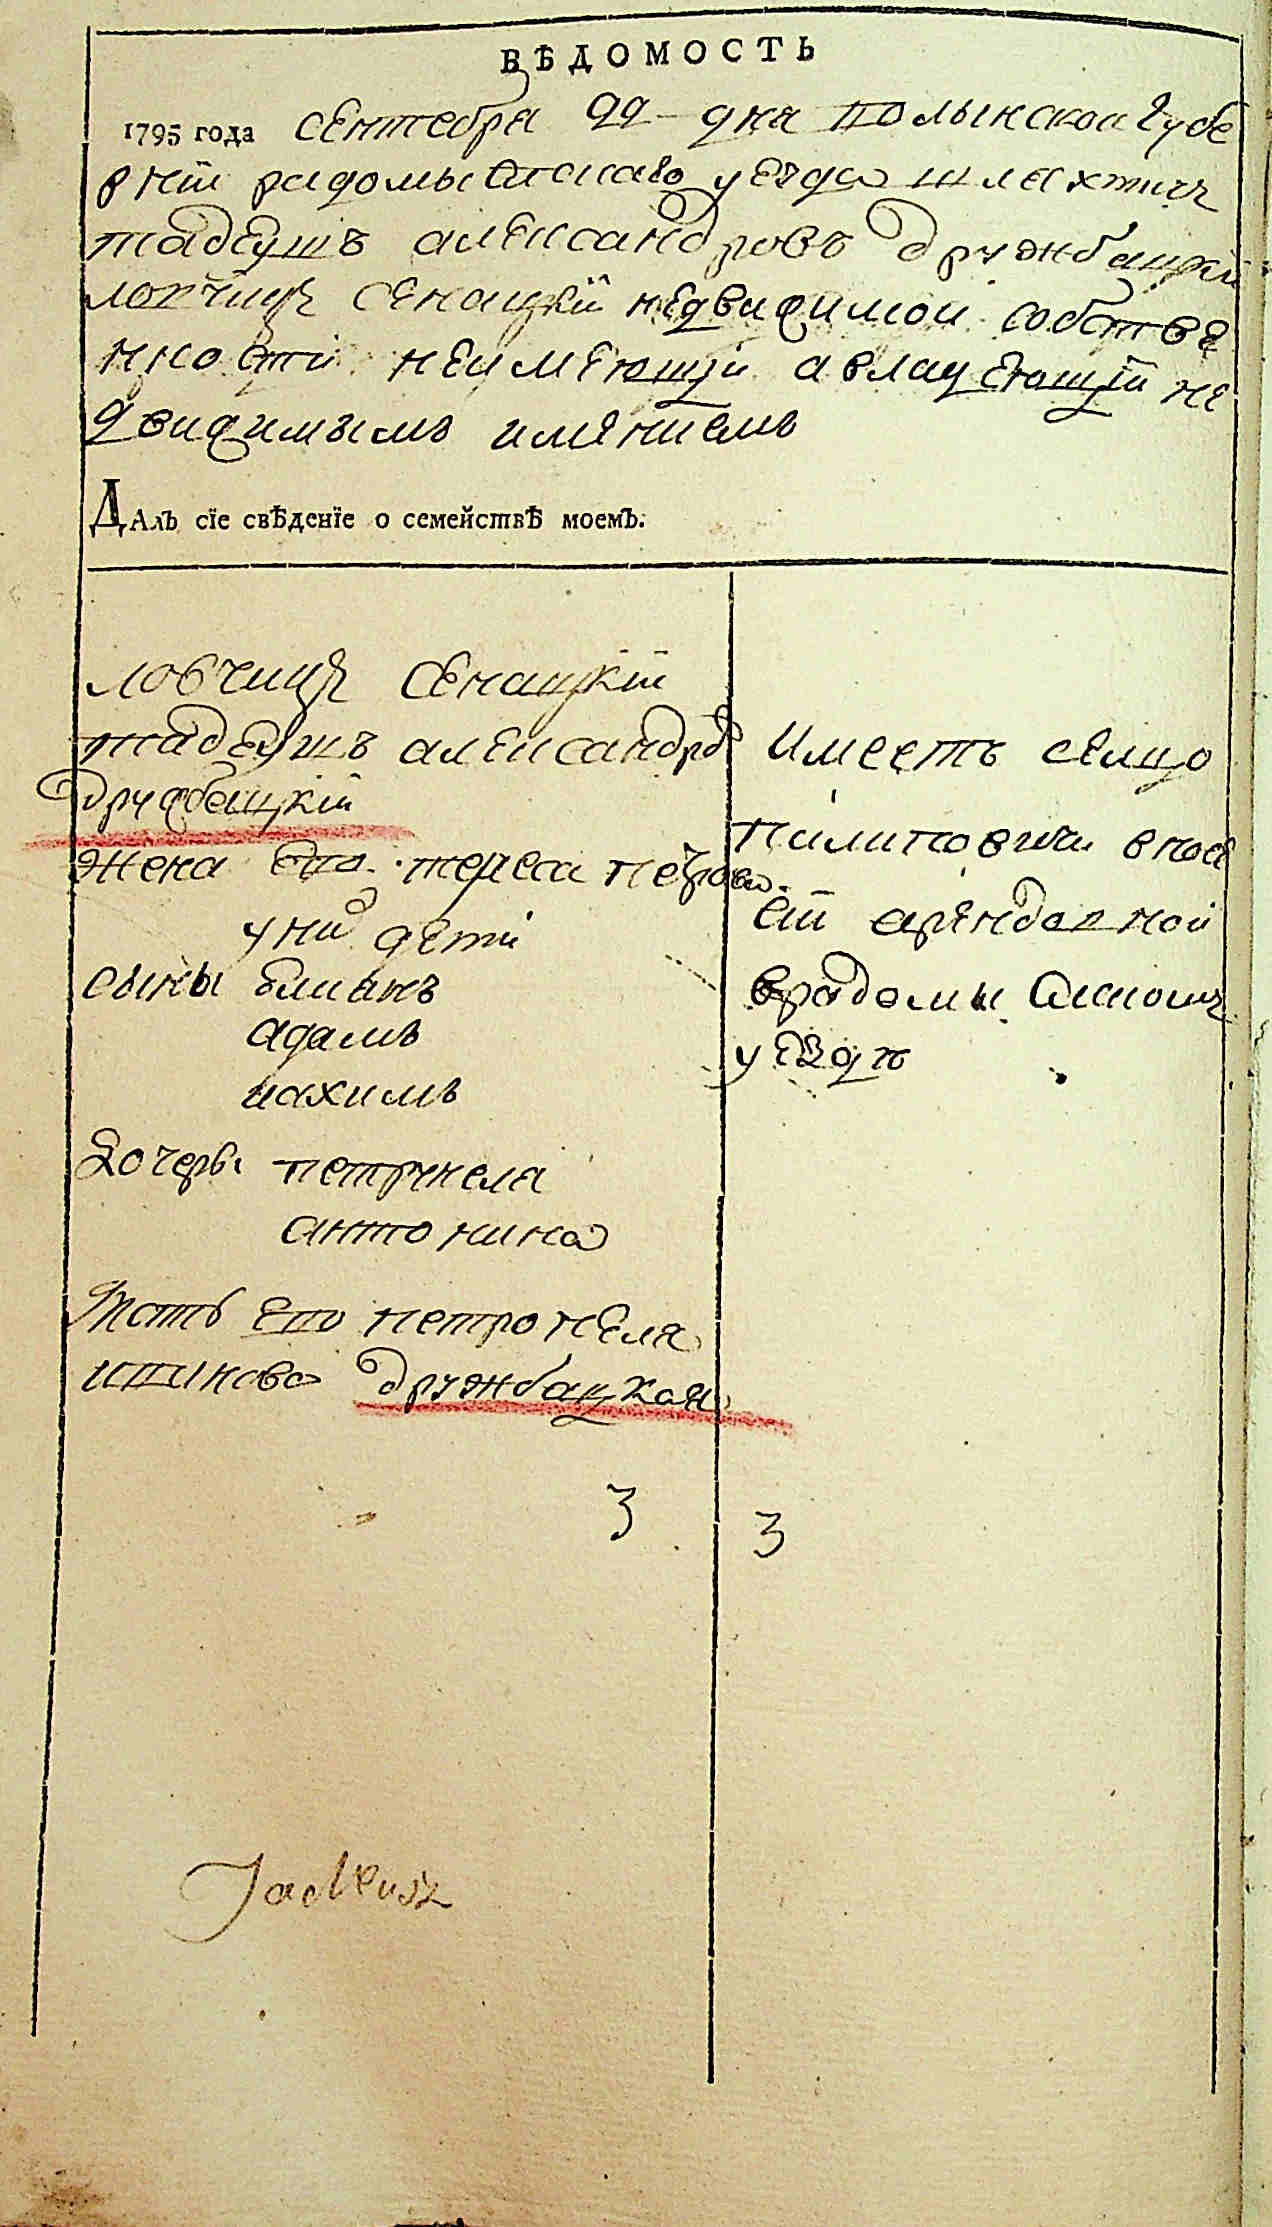 ВѢДОМОСТЬ
1795 года сентебря 22 дня волынской губе
рнїи радомысльскаго уезда шляхтичъ
тадеушъ александровъ дружбацкїй
ловчицъ сенацкїй недвижимой собстве
нности неимеющїй авладеющїй не
движимымъ имениемъ
ДАлъ сїе свѣденїе о семействѣ моемъ.
ловчицъ сенацкїй
тадеушъ александро
дружбацкїй
жена его тереса петрова
уних дети
сыны
адамъ
иахимъ
дочери петрунеля
антонина
Мать его петронеля
дружбацкая
имеетъ селцо
пилиповичи впосе
сїи арендовной
врадомысльскомъ
уездѣ
3 3
Tadeusz